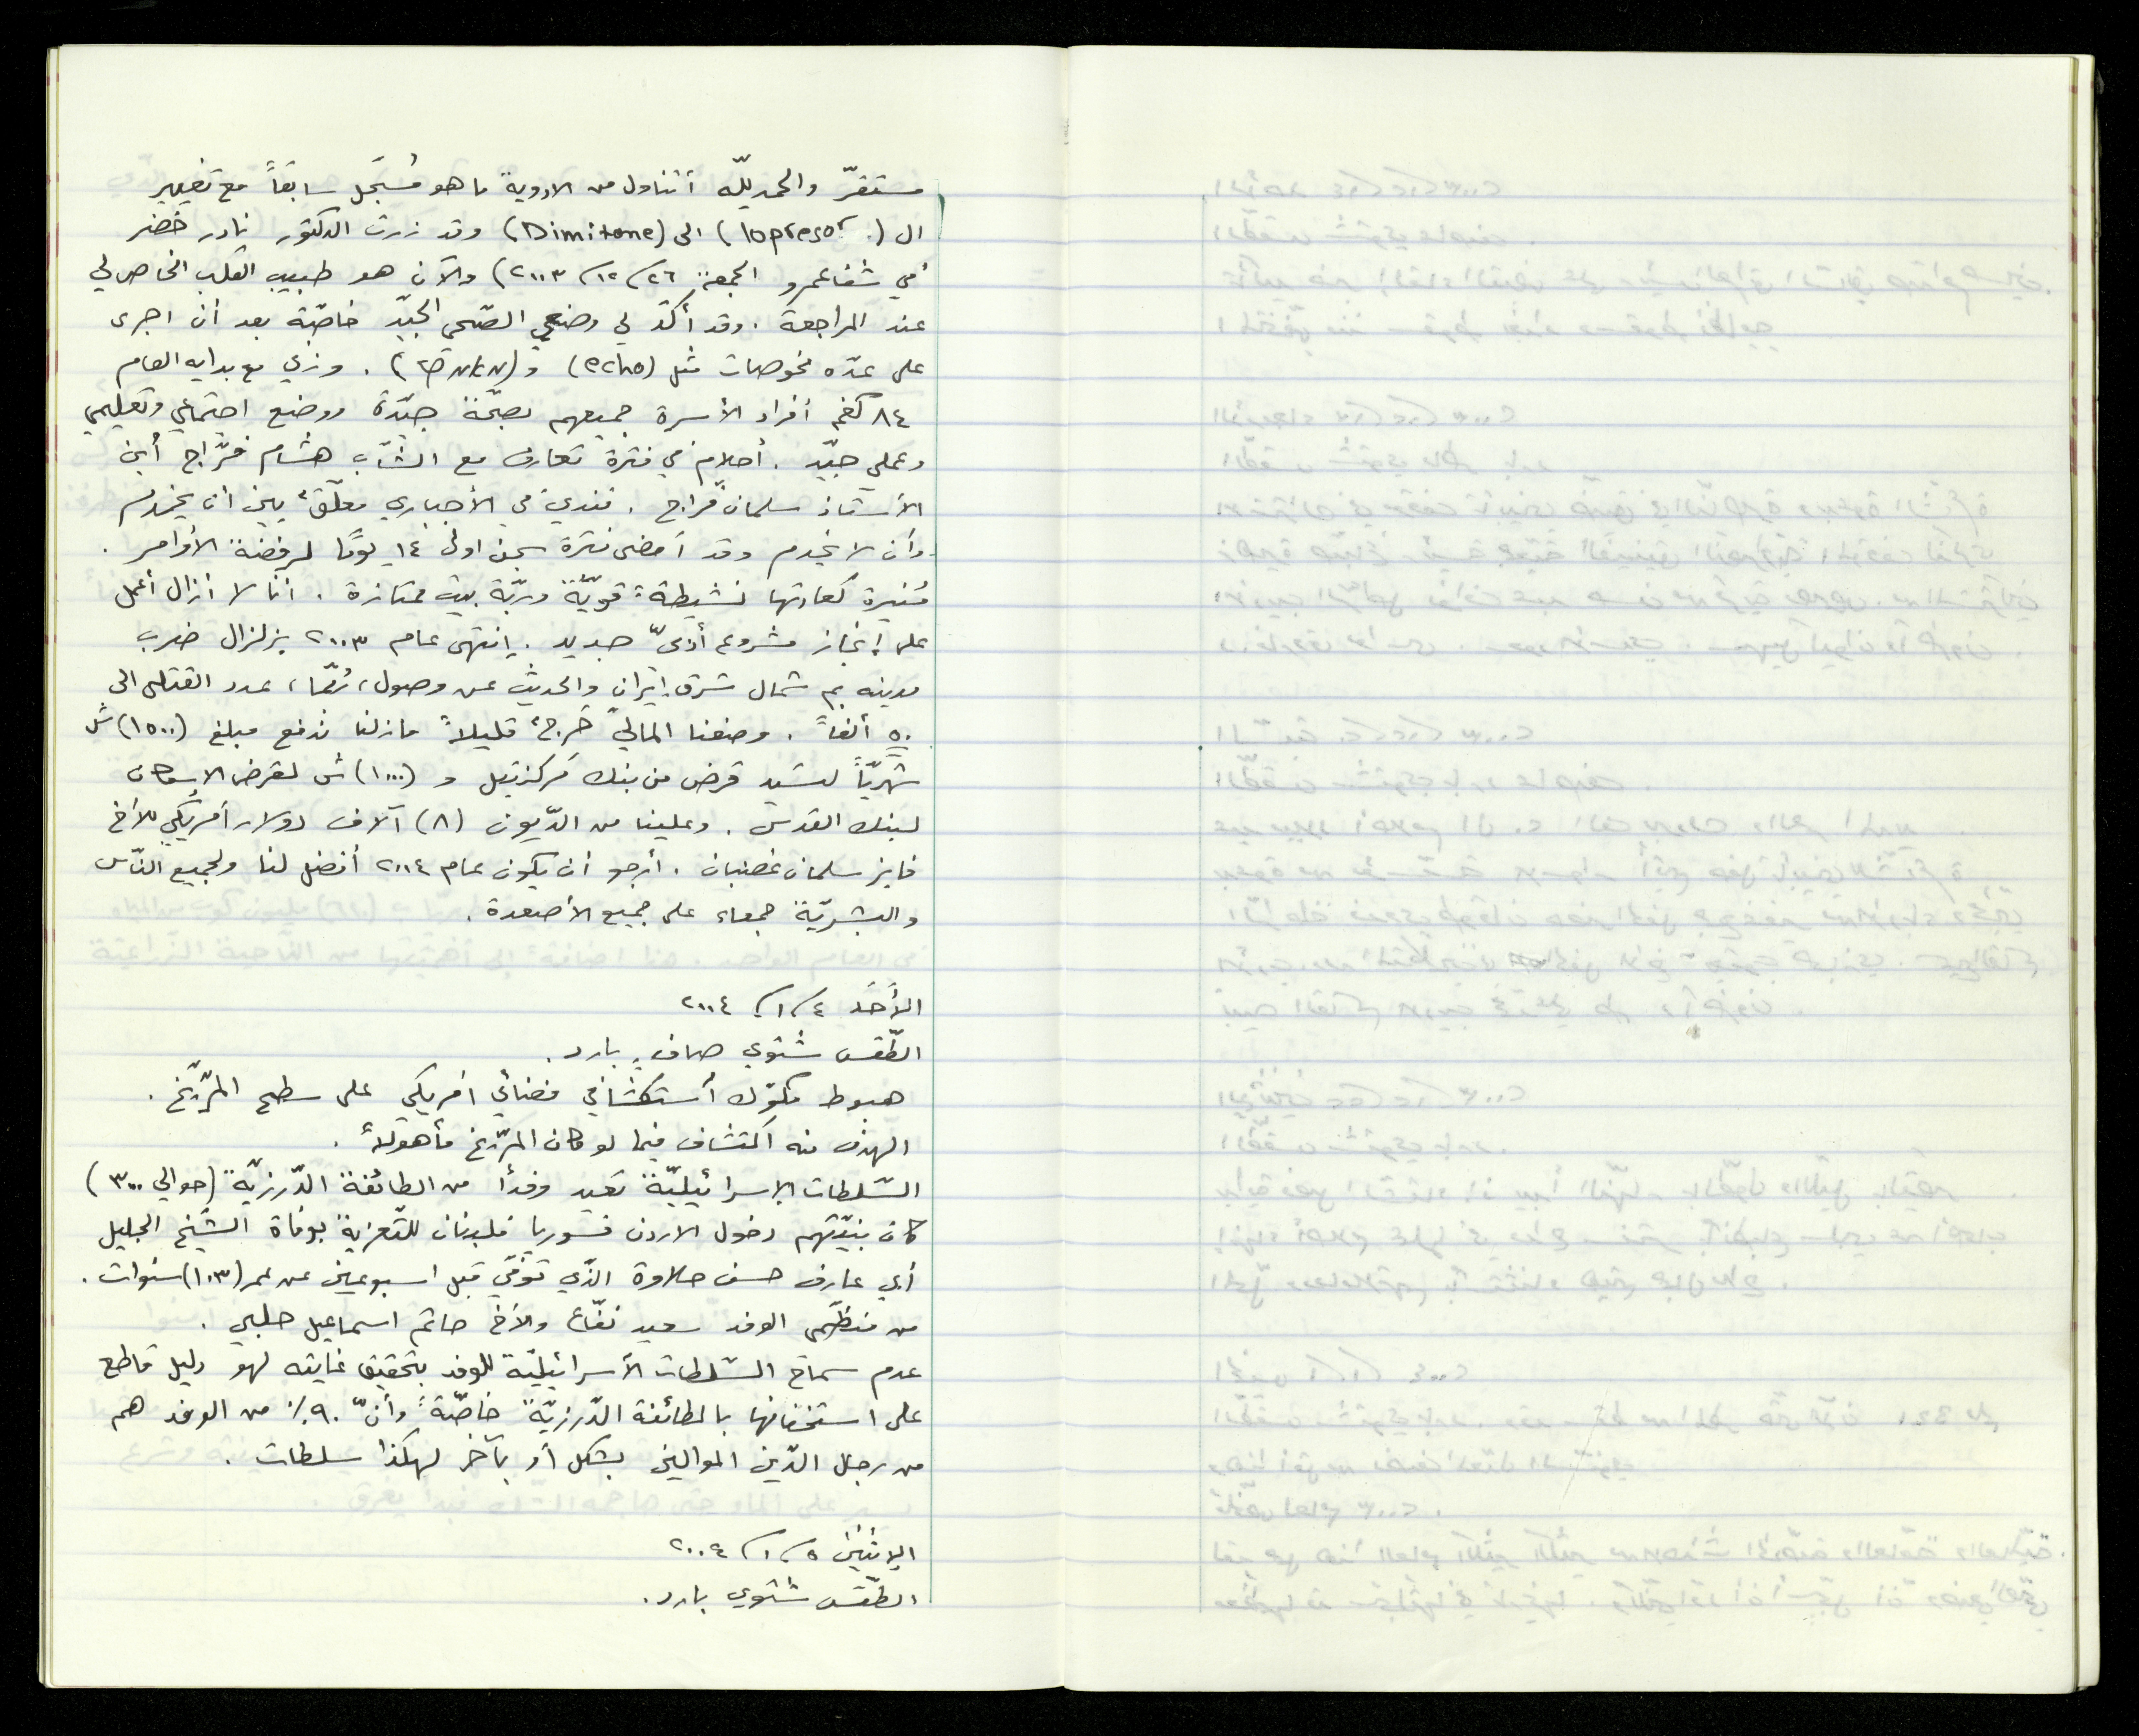 مستقرّ والحمدلله أتناول من الادوية ما هو مُسجّل سابقاً مع تغيير
ال (lopresor) الى (Dimitone) وقد زرت الدكتور نادر خضر
في شفاعمرو الجمعة ٢٦/١٢/٢٠٠٣) والآن هو طبيب القلب الخاص لي
عند المراجعة . وقد أكّد لي وضعي الصّحي الجيّد خاصّة بعد أن اجرى
على عدّه فحوصات مثل (echo) و . وزني مع بدايه العام
٨٤ كغم أفراد الأسرة جميعهم بصحّة جيّدة ووضع اجتماعي وتعليمي
وعملي جيّد . أحلام في فترة تعارف مع الشّاب هشام فرّاج أبن
الأستاذ سلمان فرّاج . فندي في الأجباري معلّق بين أن يخدم
وأن لا يخدم وقد أمضى فترة سجن اولى ١٤ يومًا لرفضة الأوامر .
مُنيرة كعادتها نشيطة قويّة وربّة بيت ممتازة . انا لا أزال أعمل
على إنجاز مشروع أدبيّ جديد . إنتهى عام ٢٠٠٣ بزلزال ضرب
مدينه بم شمال شرق إيران والحديث عن وصول، رُبّما، عدد القتلى الى
٥٠ ألفاً . وضعنا الماليّ حَرج قليلاً مازلنا ندفع مبلغ (١٥٠٠) ش
شهريّاً لسَدِ قرض من بنك مركنتيل و (١٠٠٠) ش لقرض الإسكان
لبنك القدس . وعلينا من الدّيون (٨) آلاف دولار أمريكي للأخ
فايز سلمان غضبان . أرجو ان يكون عام ٢٠٠٤ أفضل لنا ولجميع النّاس
والبشريّة جمعاء على جميع الأصعدة .
الأحَد ٤/١/٢٠٠٤
الطّقس شتوي صاف بارد .
هبوط مكوّك أستكشافي فضائي امريكي على سطح المرّيخ .
الهدف منه اكتشاف فيما لو كان المرّيخ مأهولاً .
السّلطات الإسرائيليّة تعيد وفداً من الطائفة الدّرزيّة (حوالي ٣٠٠)
كان بنيّتهم دخول الاردن فسوريا فلبنان للتّعزية بوفاة الشّيخ الجليل
أبي عارف حسن حلاوة الذّي توفّي قبل اسبوعين عن عمر (١٠٣) سنوات .
من منظّمي الوفد سعيد نفّاع والأخ حاتم اسماعيل حلبي .
عدم سماح السّلطات الأسرائيليّة للوفد بتحقيق غايته لهو دليل قاطع
على استخفافها بالطائفة الدّرزيّة خاصّةً وأنّ ٩٠٪ من الوفد هم
من رجال الدّين الموالين بشكل أو بآخر لهكذا سلطات .
الإثنين ٥/١/٢٠٠٤
الطّقس شتوي بارد .